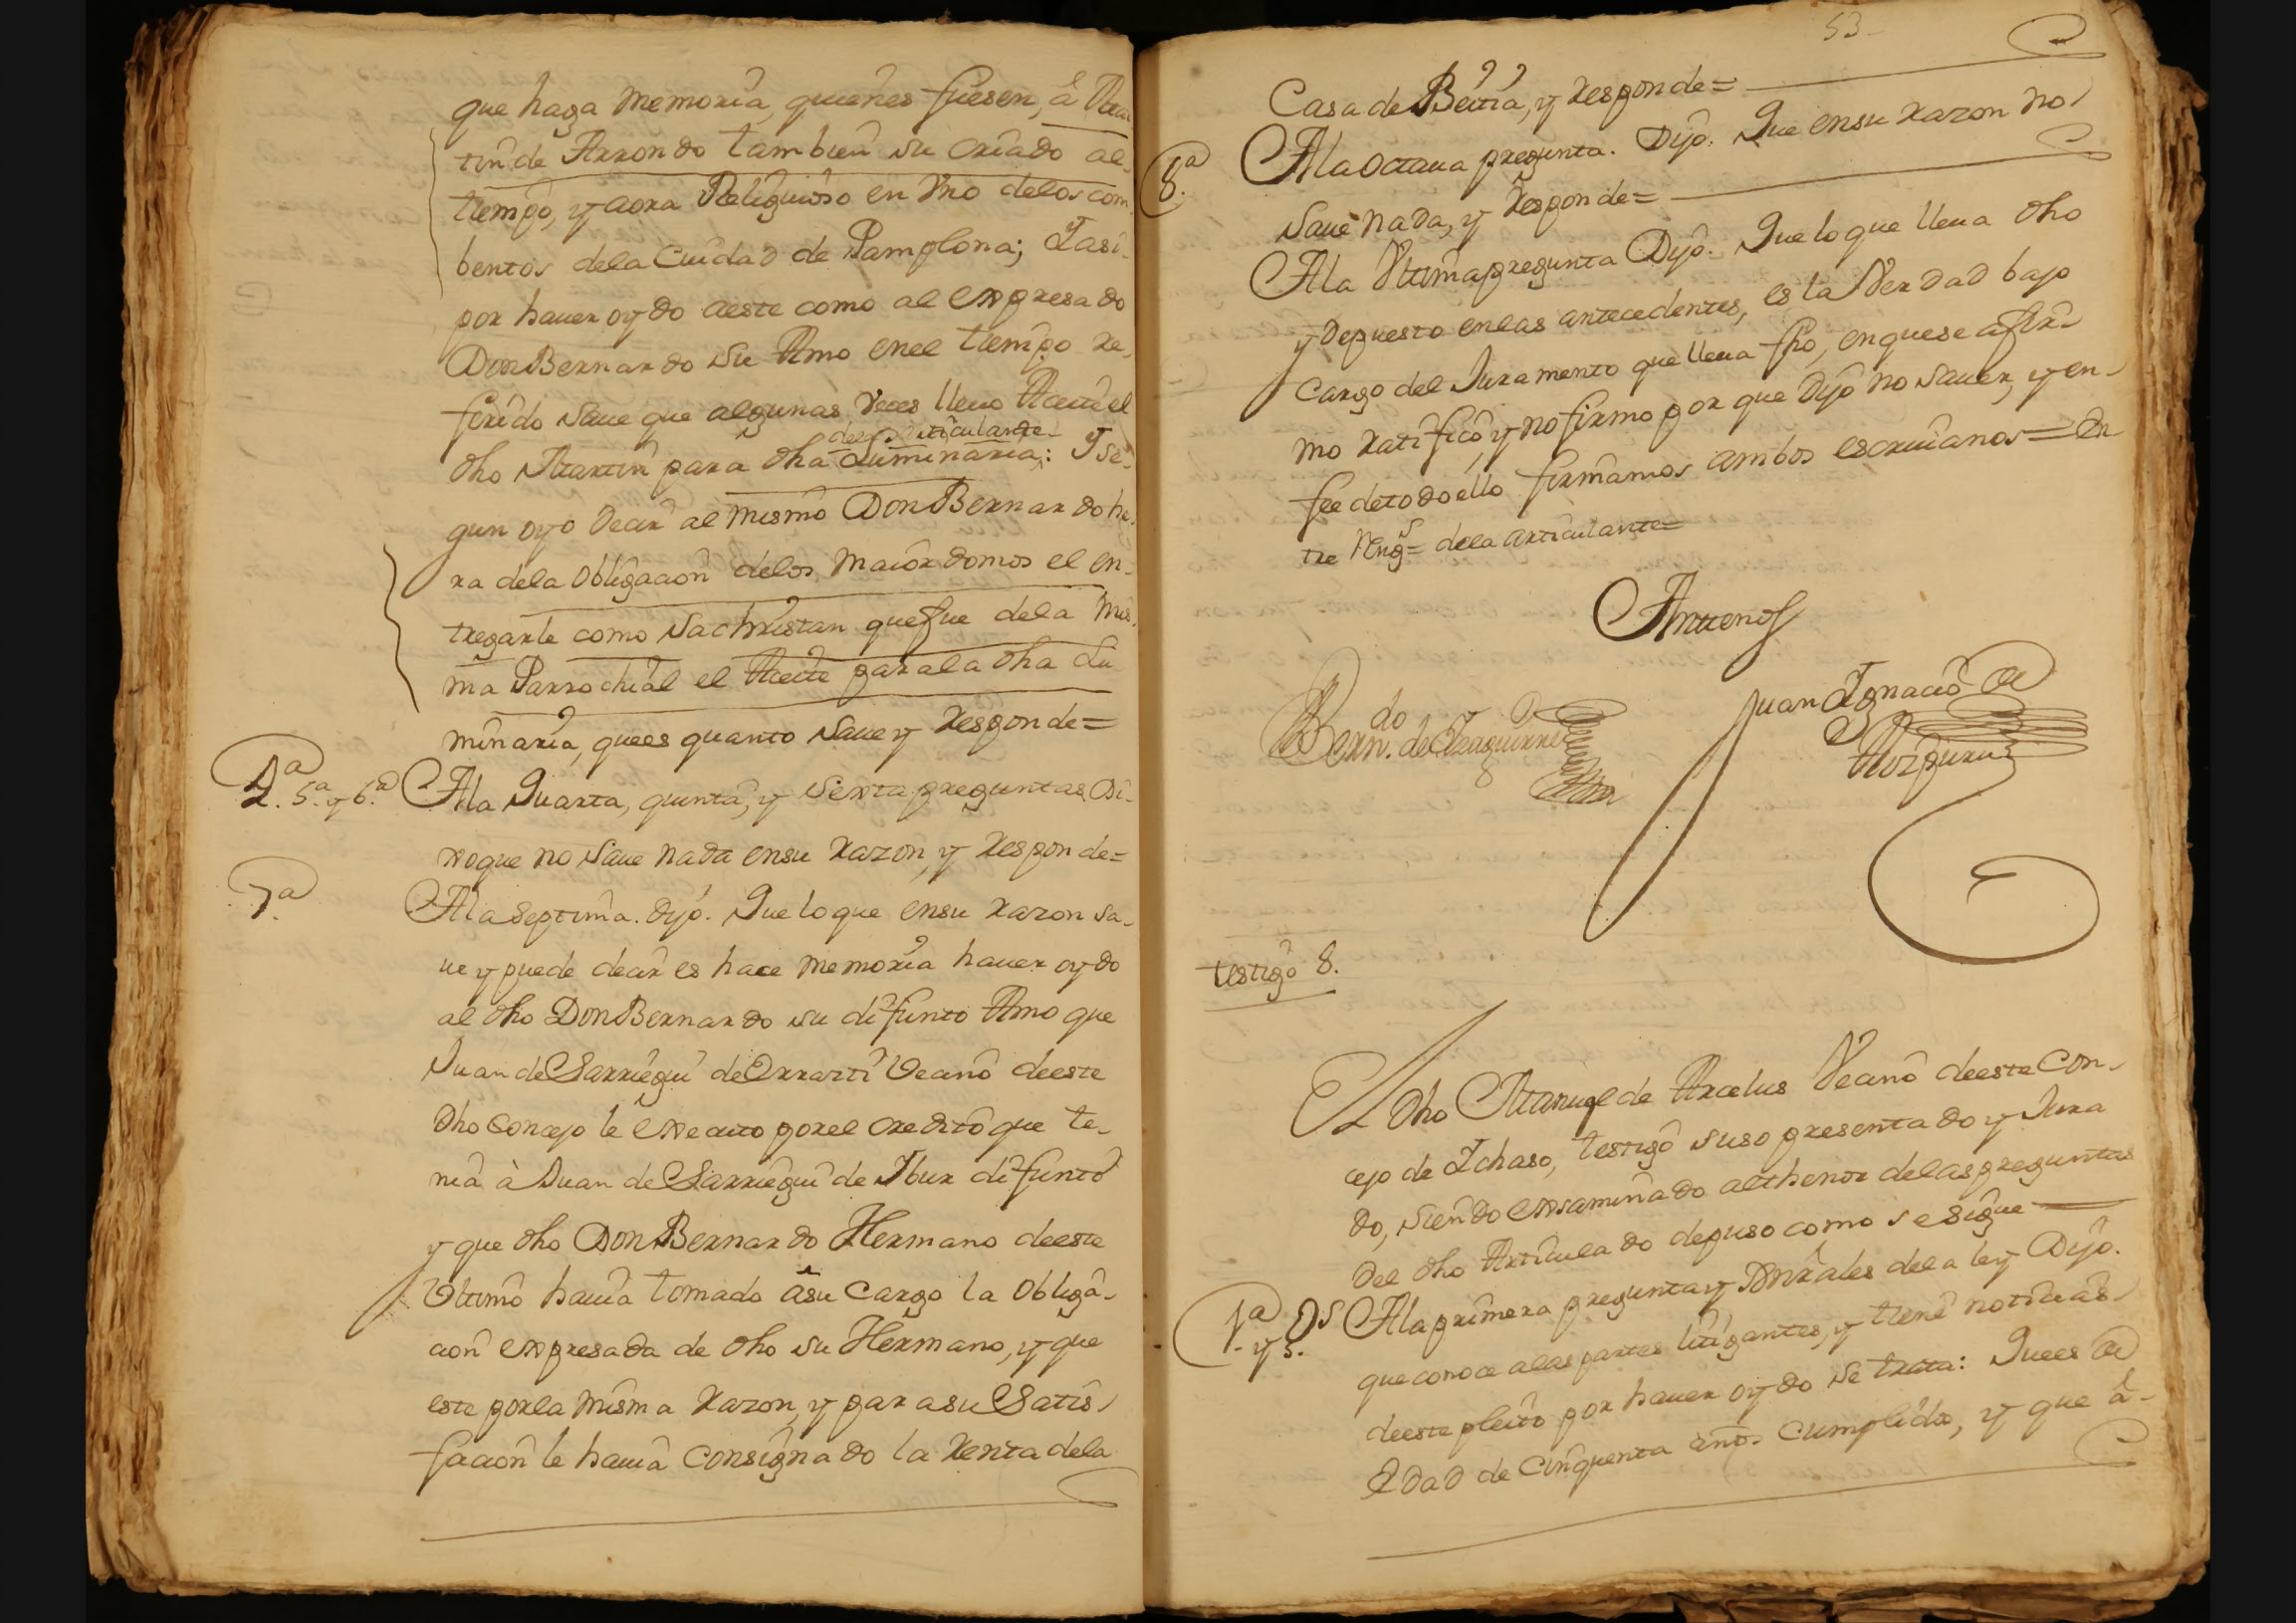 que haga memoria, quienes fuesen, â Mar
tin de Arrondo tambien su criado al
tiempo, y aora Religuioso en Vno delos com
bentos dela Ciudad de Pamplona; Y asi
por hauer oydo aeste como al expresado
Don Bernardo su Amo enel tiempo re
ferido saue que algunas veces lleuo Aceite el
de la articulante
dho Martin para dha Luminaria: Y se
gun oyo decir al mismo Don Bernardo he
ra dela obligacion delos Maiordomos el en
tregarle como sachristan quefue dela mis
ma Parrochial el Aceite parala dha Lu
minaria, quees quanto saue y responde=
4.ª 5.ª y 6.ª Ala Quarta, quinta, y sexta preguntas Di
xoque no saue nada ensu razon, y responde=
7.ª Ala septima. dijo. Que loque ensu razon sa
ue y puede decir es hace memoria hauer oydo
al dho Don Bernardo su difunto Amo que
Juan de Sarriegui de Orrarti Vecino deeste
dho Concejo le executo porel credito que te
nia à Juan de Sarriegui de Ybur difunto
y que dho Don Bernardo Hermano deeste
Vltimo hauia tomado asu cargo la obliga
cion expresada de dho su Hermano, y que
este porla misma razon, y para su Satis
facion le hauia consignado la renta dela
53
Casa de Beitia, y responde=
8.ª Ala octaua pregunta. Dijo. Que ensu razon no
saue nada, y responde=
Ala Vltima pregunta Dijo. Que loque lleua dho
y depuesto enlas antecedentes, es la Verdad bajo
cargo del Juramento que lleua fho, enquese afir
mo ratifico, y no firmo por que Dijo no sauer, y en
fee detodoello firmamos ambos escriuanos= En
tre Reng.s= dela articulante=
Antenos
Bern.do de Yzaguirre
Juan Ygnacio de
Aizpuru
testigo 8.
El dho Manuel de Arcelus Vecino deeste Con
cejo de Ychaso, testigo suso presentado y Jura
do, siendo exsaminado althenor delas preguntas
del dho Articulado depuso como se sigue
1.ª y Gs. Ala primera pregunta y Gnrales dela ley Dijo.
que conoce alas partes litigantes, y tiene noticias
deeste pleito por hauer oydo se trata: Quees de
Edad de cinquenta años cumplidos, y que â